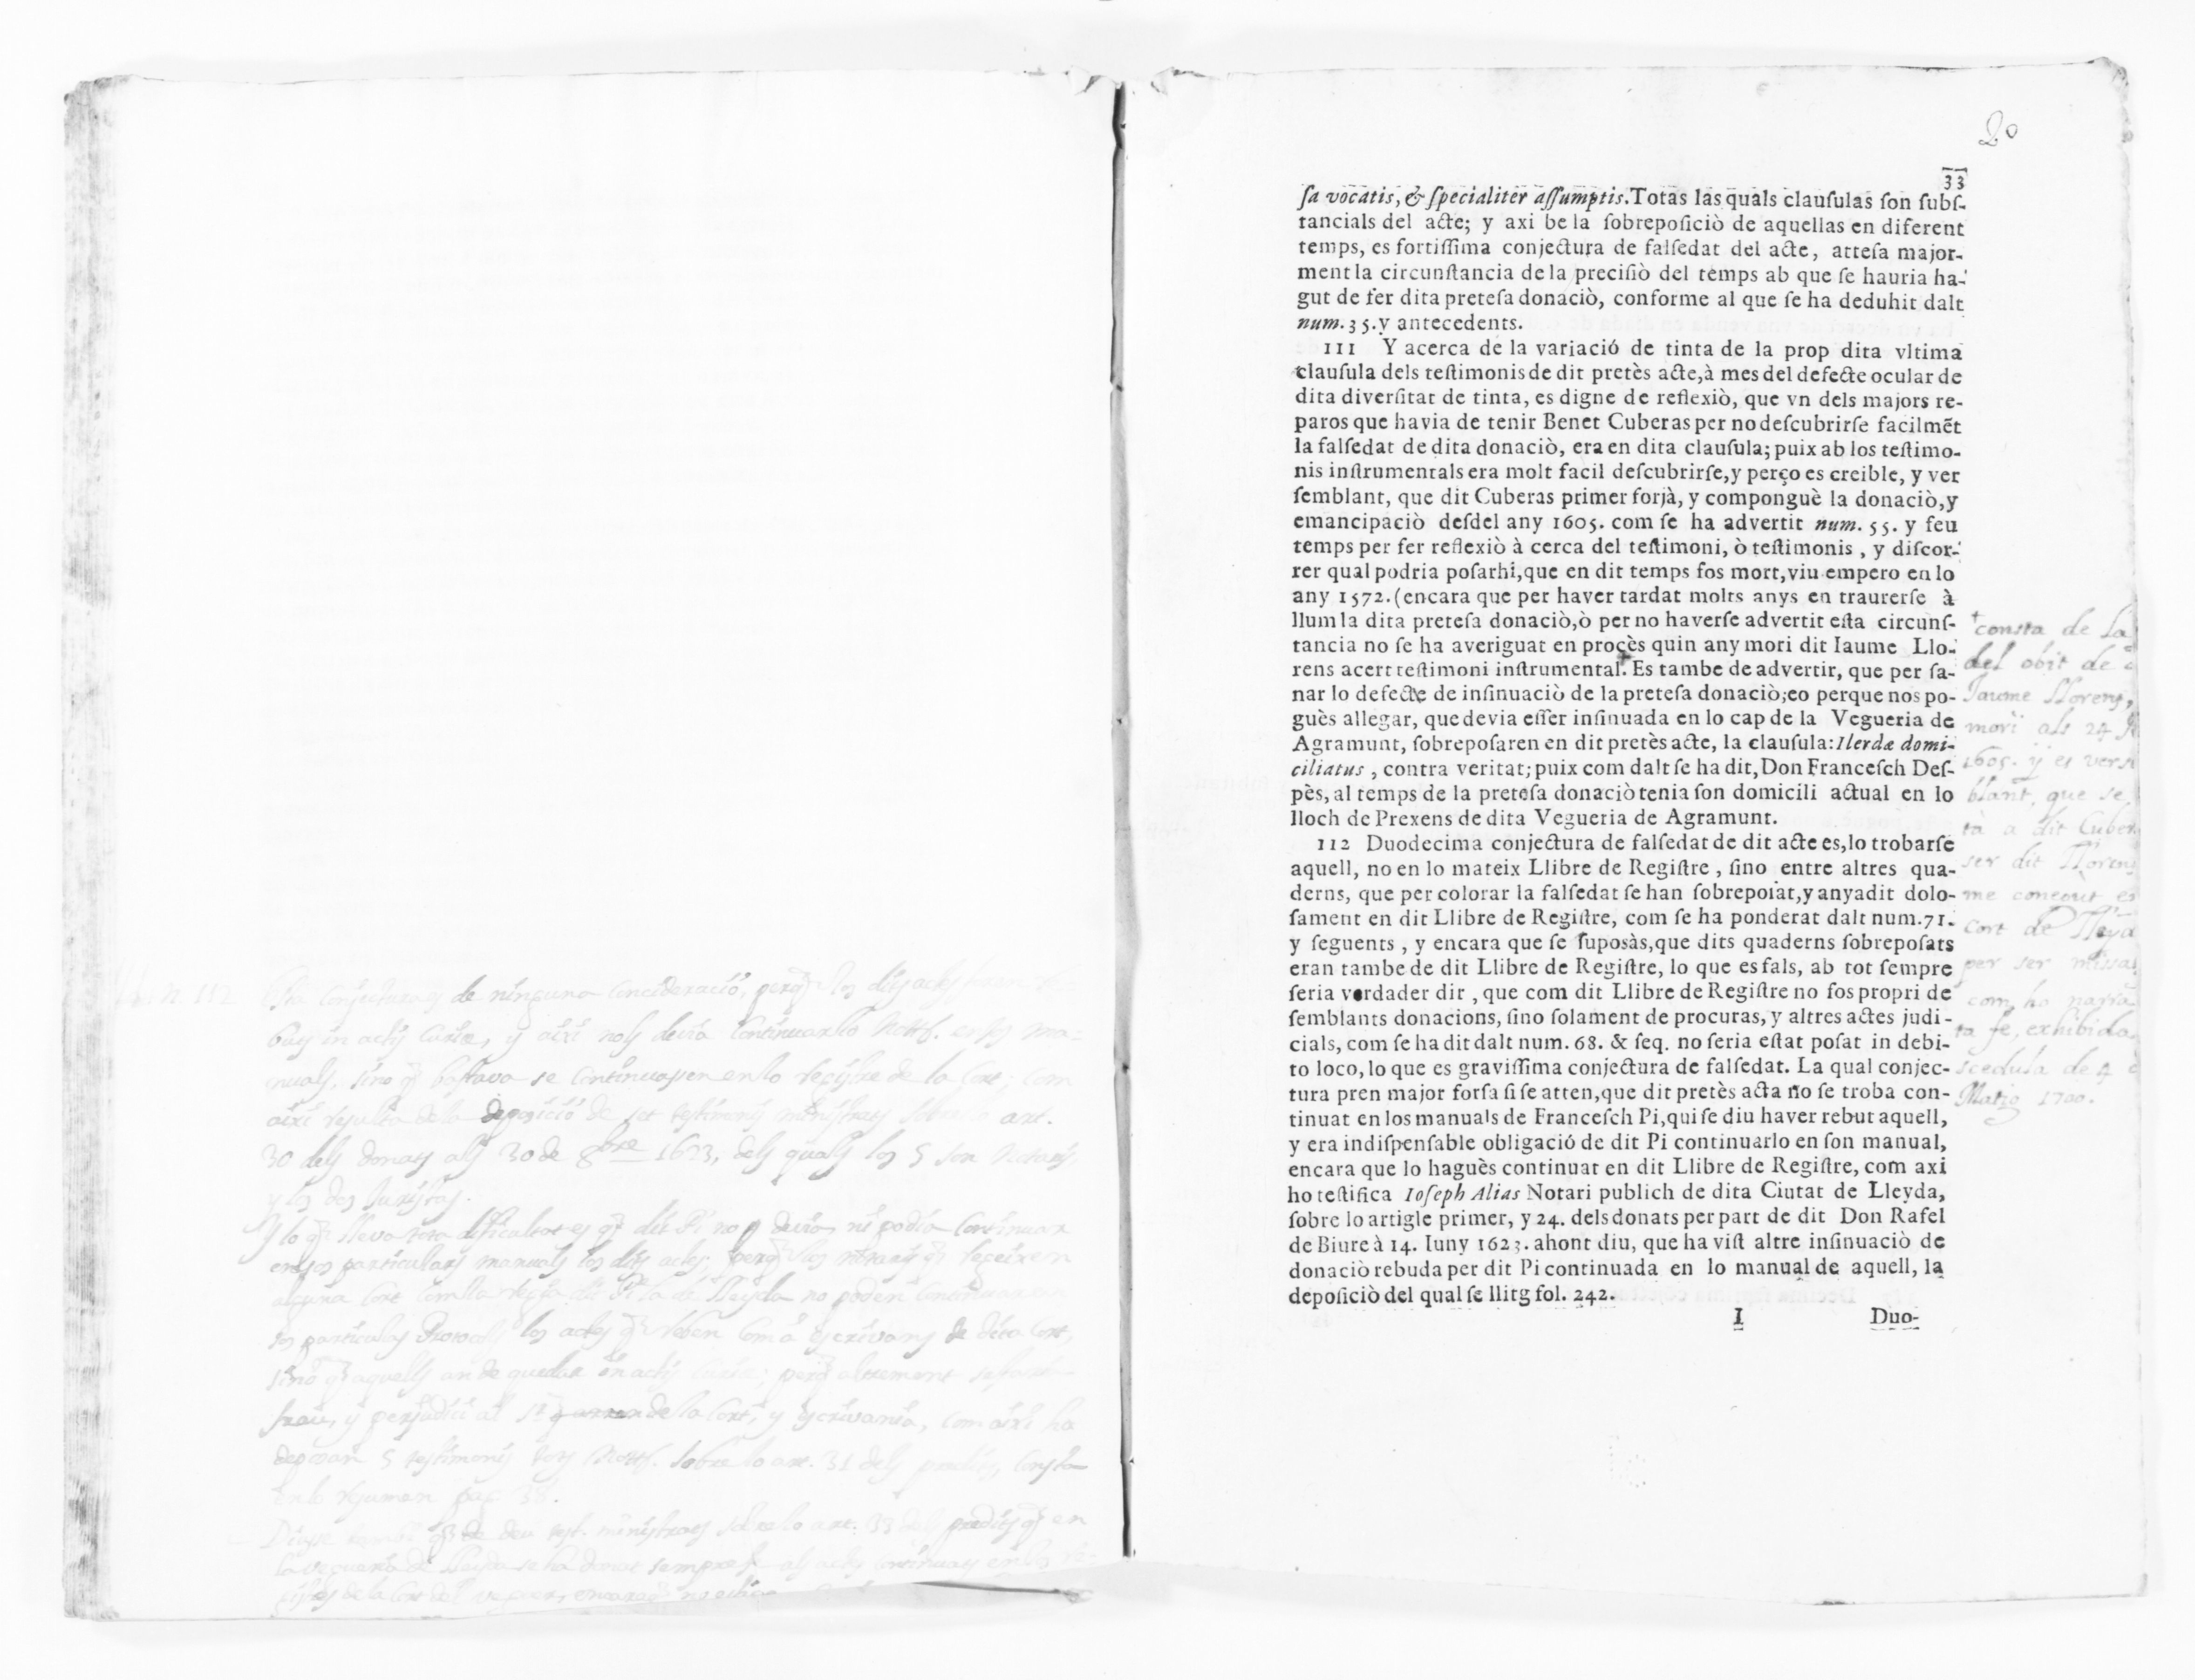 de ninguna concideració, perq̃ los dits actes foren
bats in actis Curiæ, y aixi nols devia Continuar
nuals, sino q̃ bastava se Continuassen en lo registre de la Cort; com
aixi resulta de la deposició de set testimonis ministrats sobre lo art.
30 dels donats als 30 de 8bre 1623, dels quals los 5 son Notaris,
y los dos Juristas.
Y lo q̃ lleva tota dificultat es q̃ dit Pi no devia, ni podia Continuar
en sos particulars manuals los dits actes, perq̃ los notaris q̃ regeixen
alguna Cort de Lleyda no poden Continuar en
los actes q̃ reben Com á escrivans de dita Cort,
sino q̃ aquells an de quedar in actis Curiæ; perq̃ altrement
frau, y perjudici al de la Cort, y escrivania, com aixi ho
deposan 5 testimonis tots Notts. sobre lo art. 31 dels predits,
en lo resumen pag. 38.
test. ministrats sobre lo art. 33 dels predits q̃ en
la vegueria de Lleyda se ha donat sempre fe als actes continuats en los re-
gistres de la Cort del veguer, encaraq̃ no
20
33
ſa vocatis, & ſpecialiter aſſumptis. Totas las quals clauſulas ſon ſubſ-
tancials del acte; y axi be la ſobrepoſiciò de aquellas en diferent
temps, es fortiſſima conjectura de falſedat del acte, atteſa major-
ment la circunſtancia de la preciſiò del temps ab que ſe hauria ha-
gut de fer dita preteſa donaciò, conforme al que ſe ha deduhit dalt
num. 35. y antecedents.
111 Y acerca de la variació de tinta de la prop dita vltima
clauſula dels teſtimonis de dit pretès acte, à mes del defecte ocular de
dita diverſitat de tinta, es digne de reflexiò, que vn dels majors re-
paros que havia de tenir Benet Cuberas per no deſcubrirſe facilmẽt
la falſedat de dita donaciò, era en dita clauſula; puix ab los teſtimo-
nis inſtrumentals era molt facil deſcubrirſe, y perço es creible, y ver
ſemblant, que dit Cuberas primer forjà, y componguè la donaciò, y
emancipaciò deſdel any 1605. com ſe ha advertit num. 55. y feu
temps per fer reflexiò à cerca del teſtimoni, ò teſtimonis, y diſcor-
rer qual podria poſarhi, que en dit temps fos mort, viu empero en lo
any 1572. (encara que per haver tardat molts anys en traurerſe à
llum la dita preteſa donaciò, ò per no haverſe advertit eſta circunſ-
tancia no ſe ha averiguat en procès quin any mori dit Iaume Llo-
rens acert teſtimoni inſtrumental. Es tambe de advertir, que per ſa-
nar lo defecte de inſinuaciò de la preteſa donaciò; eo perque nos po-
guès allegar, que devia eſſer inſinuada en lo cap de la Vegueria de
Agramunt, ſobrepoſaren en dit pretès acte, la clauſula: Ilerdæ domi-
ciliatus, contra veritat; puix com dalt ſe ha dit, Don Franceſch Deſ-
pès, al temps de la preteſa donaciò tenia ſon domicili actual en lo
lloch de Prexens de dita Vegueria de Agramunt.
112 Duodecima conjectura de falſedat de dit acte es, lo trobarſe
aquell, no en lo mateix Llibre de Regiſtre, ſino entre altres qua-
derns, que per colorar la falſedat ſe han ſobrepoſat, y anyadit dolo-
ſament en dit Llibre de Regiſtre, com ſe ha ponderat dalt num. 71.
y ſeguents, y encara que ſe ſuposàs, que dits quaderns ſobrepoſats
eran tambe de dit Llibre de Regiſtre, lo que es fals, ab tot ſempre
ſeria verdader dir, que com dit Llibre de Regiſtre no fos propri de
ſemblants donacions, ſino ſolament de procuras, y altres actes judi-
cials, com ſe ha dit dalt num. 68. & ſeq. no ſeria eſtat poſat in debi-
to loco, lo que es graviſſima conjectura de falſedat. La qual conjec-
tura pren major forſa ſi ſe atten, que dit pretès acta no ſe troba con-
tinuat en los manuals de Franceſch Pi, qui ſe diu haver rebut aquell,
y era indiſpenſable obligació de dit Pi continuarlo en ſon manual,
encara que lo haguès continuat en dit Llibre de Regiſtre, com axi
ho teſtifica Ioſeph Alias Notari publich de dita Ciutat de Lleyda,
ſobre lo artigle primer, y 24. dels donats per part de dit Don Rafel
de Biure à 14. Iuny 1623. ahont diu, que ha viſt altre inſinuaciò de
donaciò rebuda per dit Pi continuada en lo manual de aquell, la
depoſiciò del qual ſe llitg fol. 242.
I Duo-
consta de la
del obit de
Jaume Llorens,
morì als 24
1605. y es vers
blant, que se
tà a dit Cuber
ser dit Llorens
me conegut en
Cort de Lleyda
per ser missa
com ho
ta fe, exhibida
scedula de 4
Matzo 1700.